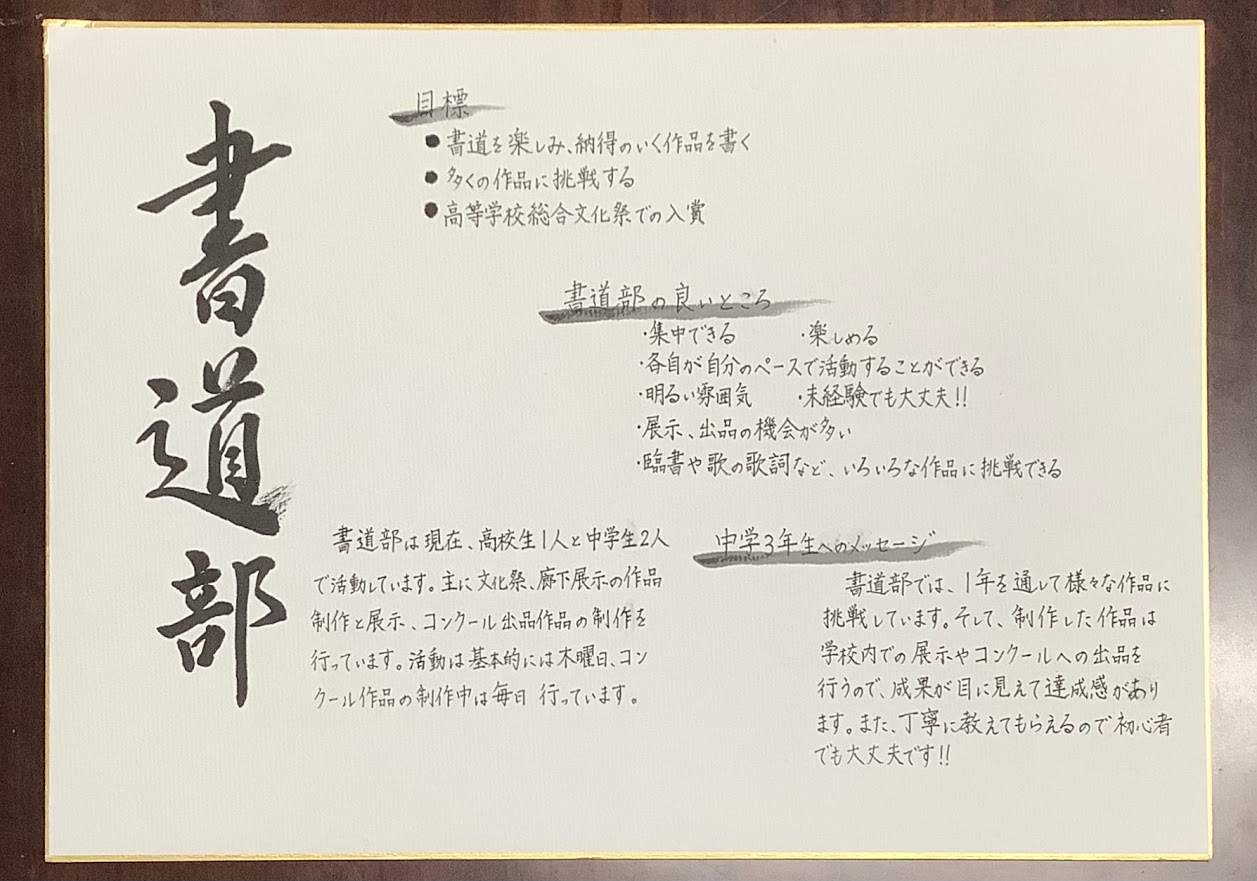 書道部
目標
●書道を楽しみ、納得のいく作品を書く
●多くの作品に挑戦する
●高等学校総合文化祭での入賞
書道部の良いところ
・集中できる ・楽しめる
・各自が自分のペースで活動することができる
・明るい雰囲気 ・未経験でも大丈夫!!
・展示、出品の機会が多い
・臨書や歌の歌詞など、いろいろな作品に挑戦できる
書道部は現在、高校生1人と中学生2人
で活動しています。主に文化祭、廊下展示の作品
制作と展示、コンクール出品作品の制作を
行っています。活動は基本的には木曜日、コン
クール作品の制作中は毎日 行っています。
中学3年生へのメッセージ
書道部では、1年を通して様々な作品に
挑戦しています。そして、制作した作品は
学校内での展示やコンクールへの出品を
行うので、成果が目に見えて達成感があり
ます。また、丁寧に教えてもらえるので初心者
でも大丈夫です!!